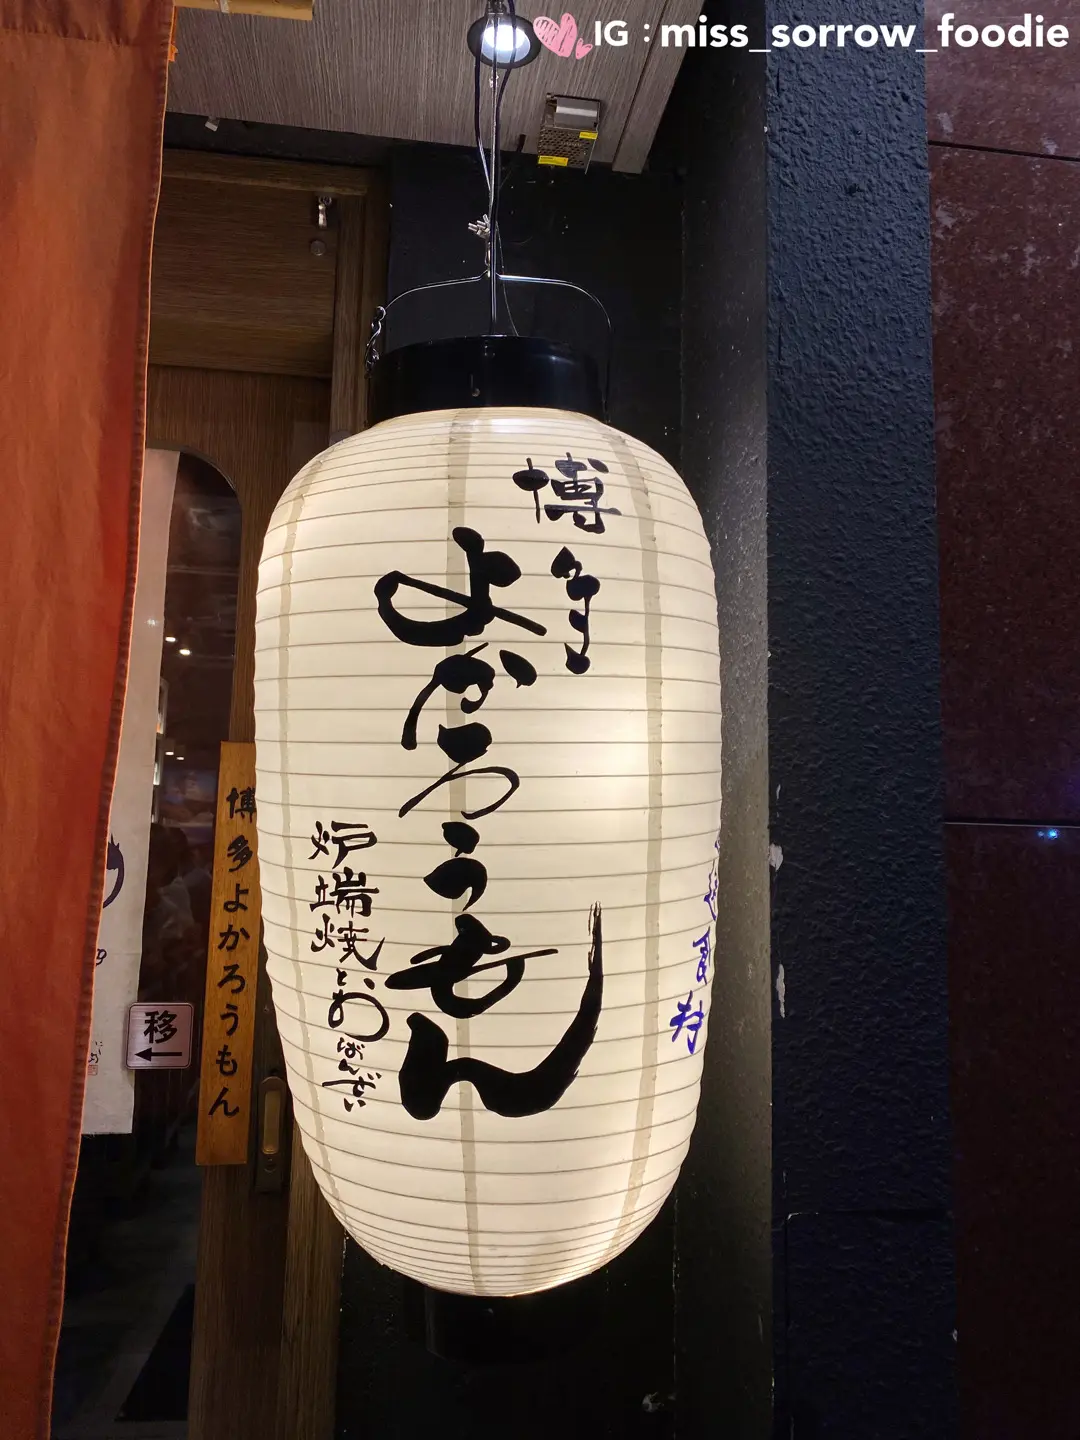 IG：miss_sorrow_foodie
博多
よかろうもん
炉端焼とおばんざい
博多よかろうもん
移